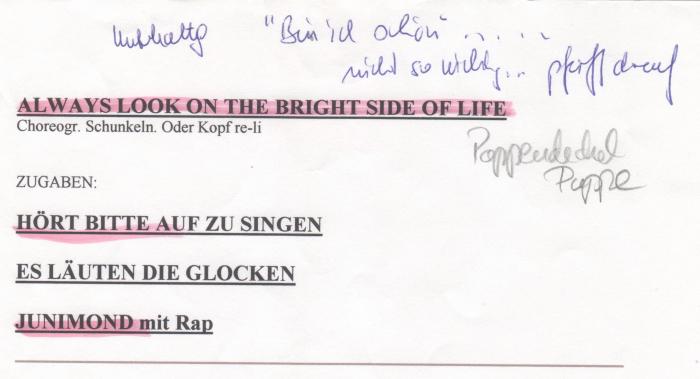 "Bin ich schön.....
nicht so wichtig... pfeiff drauf
ALWAYS LOOK ON THE BRIGHT SIDE OF LIFE
Choreogr. Schunkeln. Oder Kopf re-li
Pappendeckel
Puppe
ZUGABEN:
HÖRT BITTE AUF ZU SINGEN
ES LÄUTEN DIE GLOCKEN
JUNIMOND mit Rap